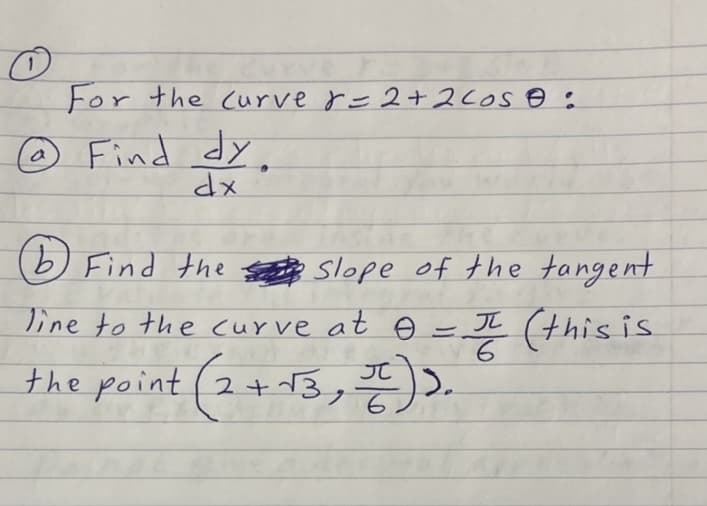 ①
For the curve r = 2 + 2 cos θ :
ⓐ Find dy/dx.
ⓑ Find the slope of the tangent
line to the curve at θ = π/6 (this is
the point (2 + √3, π/6)).